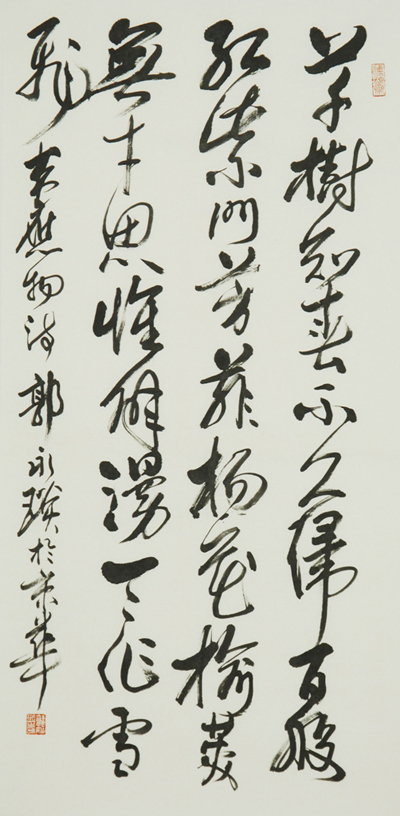 草樹知春不久歸百般
紅紫鬥芳菲楊花榆莢
無才思惟解漫天作雪
飛 韋應物詩 郭永於京華